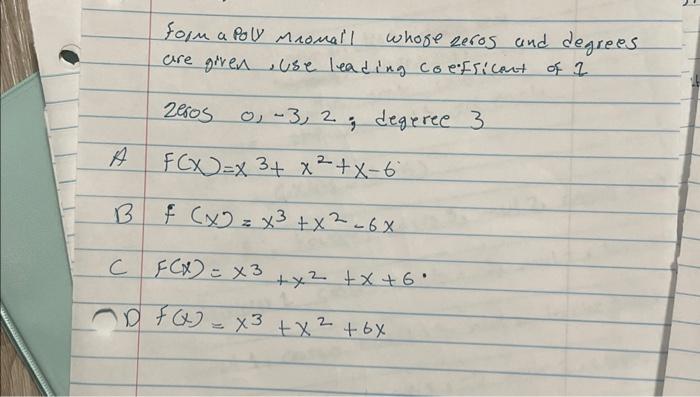 Form a Poly Mnomail whose zeros and degrees
are given, use leading coefficant of 1
Zeros 0, -3, 2 ; degeree 3
A F(X)=x³+ x²+x-6
B f (x) = x³ +x² -6x
C F(x) = x3 +x² +x+6.
D f(x) = x³ +x² +6x